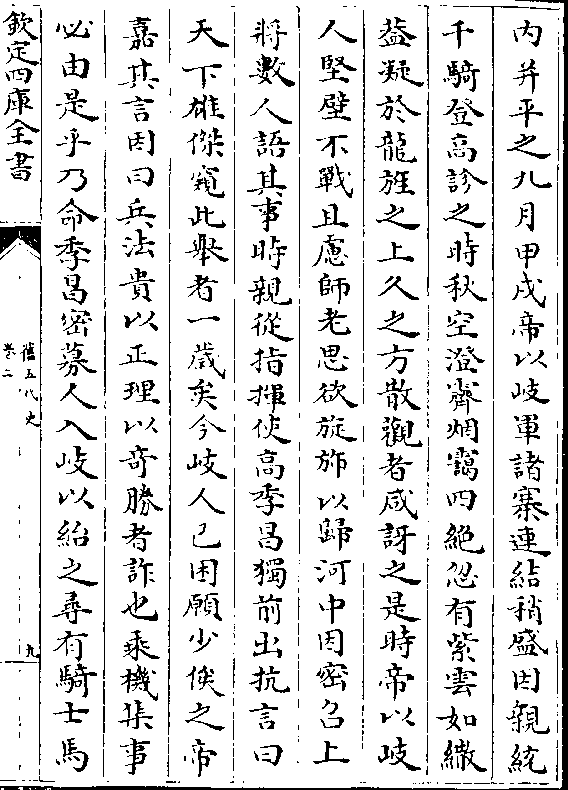 內并平之九月甲戌帝以岐軍諸寨連結稍盛因親統
千騎登高診之時秋空澄霽烟靄四絶忽有紫雲如繖
葢凝於龍旌之上久之方散觀者咸訝之是時帝以岐
人堅壁不戰且慮師老思欲旋斾以歸河中因密召上
將數人語其事時親從指揮使高季昌獨前出抗言曰
天下雄傑窺此舉者一歲矣今岐人已困願少俟之帝
嘉其言因曰兵法貴以正理以奇勝者詐也乘機集事
必由是乎乃命季昌密募人入岐以紿之尋有騎士馬
欽定四庫全書
舊五代史
卷二
九